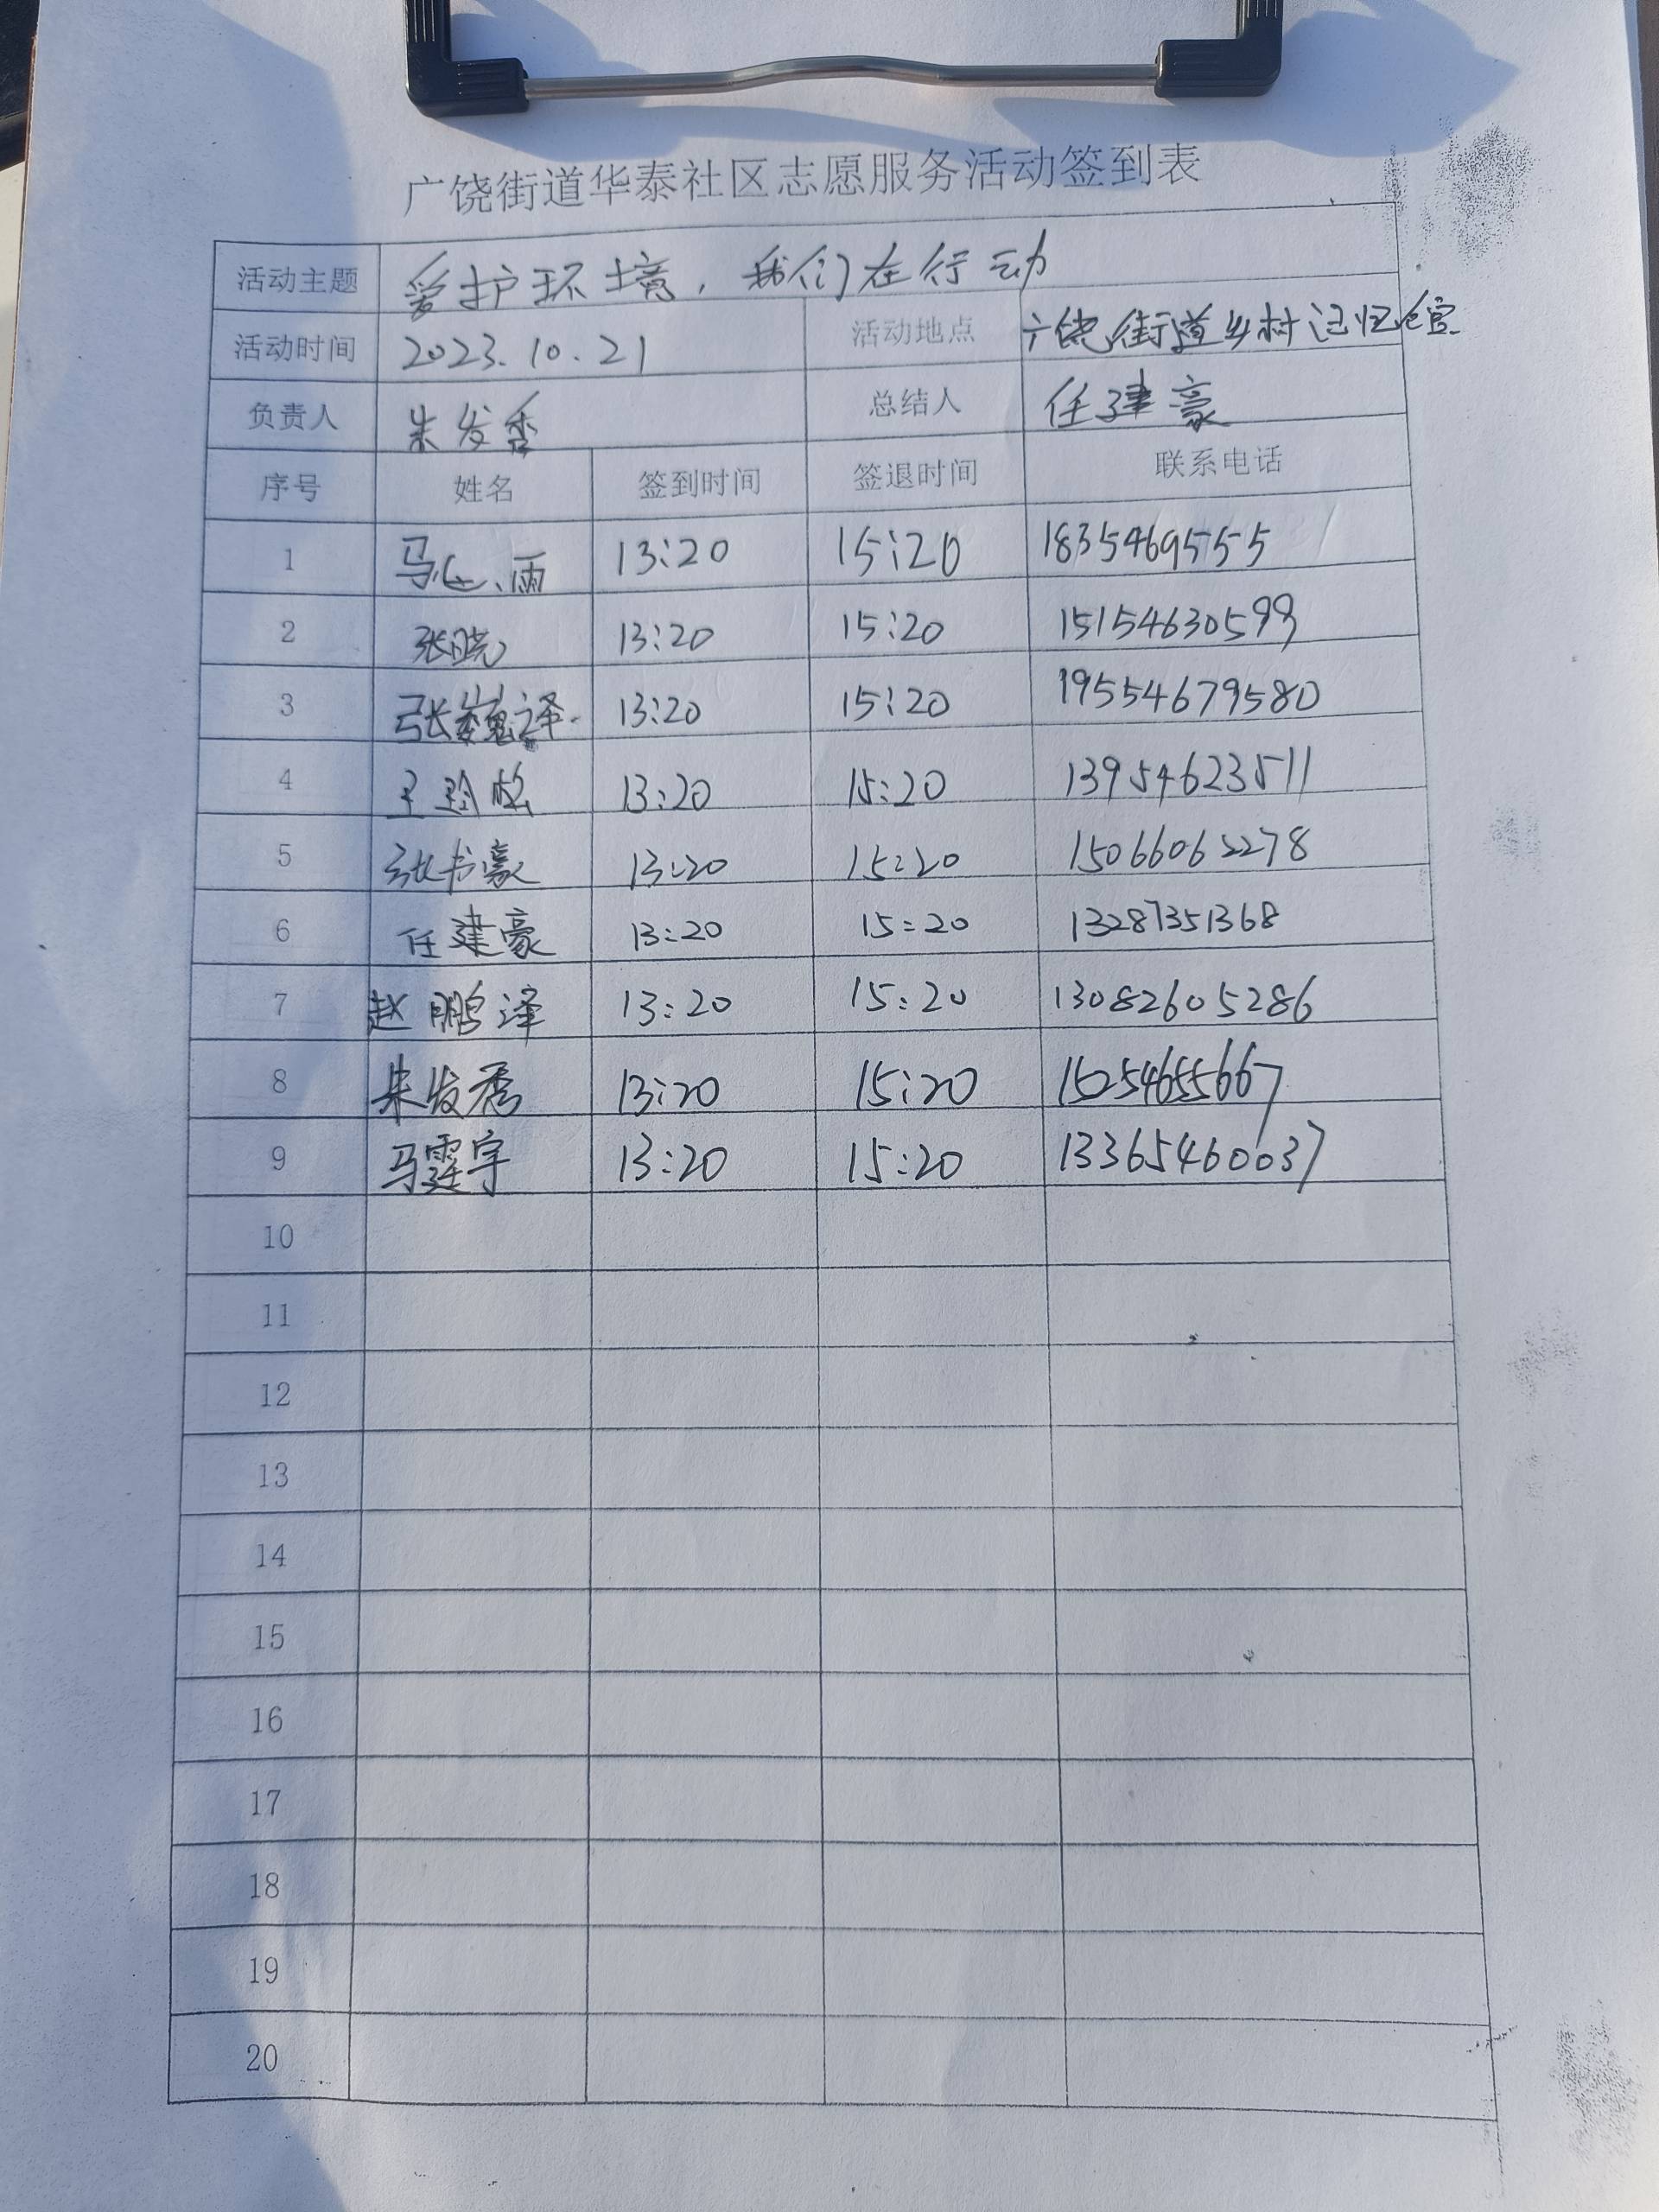 广饶街道华泰社区志愿服务活动签到表
活动主题 爱护环境，我们在行动
活动时间 2023.10.21 活动地点 广饶街道乡村记忆馆
负责人 朱发香 总结人 任建豪
序号 姓名 签到时间 签退时间 联系电话
1 马心雨 13:20 15:20 18354695555
2 张晓 13:20 15:20 15154630599
3 张巍译 13:20 15:20 19554679580
4 王 13:20 15:20 13954623511
5 张书豪 13:20 15:20 15066062278
6 任建豪 13:20 15:20 13287351368
7 赵鹏泽 13:20 15:20 13082605286
8 朱发秀 13:20 15:20 15254655667
9 马霆宇 13:20 15:20 13365460037
10
11
12
13
14
15
16
17
18
19
20